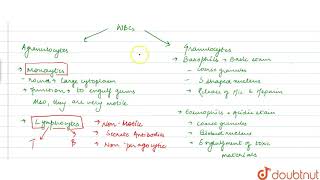 WBCs
Agranulocytes
→ Monocytes
→ round & large cytoplasm
→ function → to engulf germs
Also, they are very motile
→ Lymphocytes → Non-Motile
→ Secrete Antibodies
→ Non-phagocytic
T B
Granulocytes
→ Basophils → Basic stain
→ coarse granules
→ S shaped nucleus
→ Release of His & Heparin
→ Eosinophils → Acidic stain
→ coarse granules
→ Bilobed nucleus
→ Engulfment of toxic
materials
doubtnut